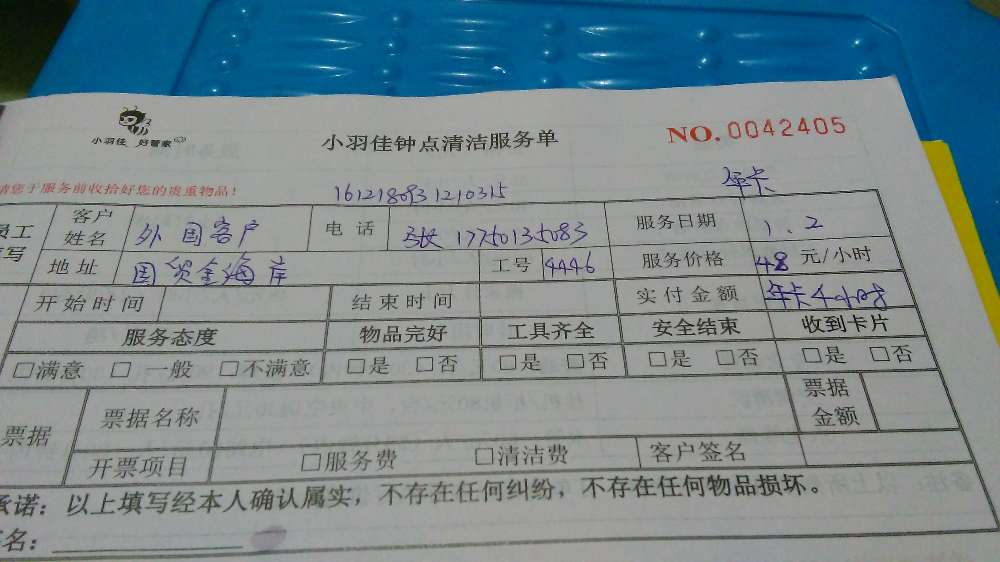 小羽佳 好管家
小羽佳钟点清洁服务单
NO.0042405
请您于服务前收拾好您的贵重物品!
1612180931210315
年卡
员工
填写
客户
姓名
外国客户
电话
17750135083
服务日期
1.2
地址
国贸金海岸
工号
4446
服务价格
48 元/小时
开始时间
结束时间
实付金额
年卡4小时
服务态度
物品完好
工具齐全
安全结束
收到卡片
□满意 □ 一般 □不满意
□是 □否
□是 □否
□是 □否
□是 □否
票据
票据名称
票据
金额
开票项目
□服务费 □清洁费
客户签名
承诺：以上填写经本人确认属实，不存在任何纠纷，不存在任何物品损坏。
名：